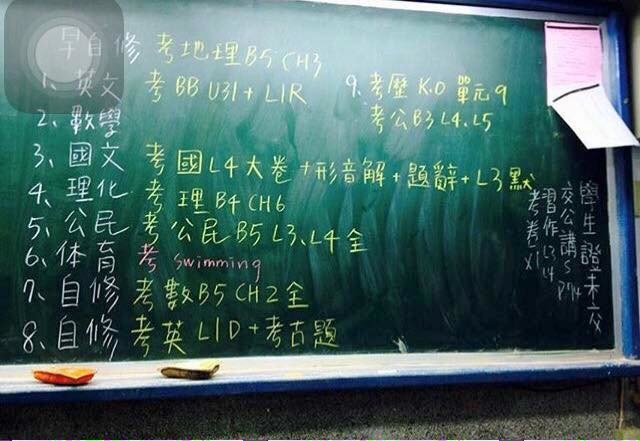 早自修 考地理B5 CH3
1、英文 考BB U31+L1R
2、數學
3、國文 考國L4大卷+形音解+題辭+L3默
4、理化 考理B4 CH6
5、公民 考公民B5 L3、L4全
6、体育 考 swimming
7、自修 考數B5 CH2全
8、自修 考英L1D+考古題
9、考歷 K.O 單元9
考公B3 L4、L5
學生證未交
交公講S P74
習作L3 L4
考卷x1